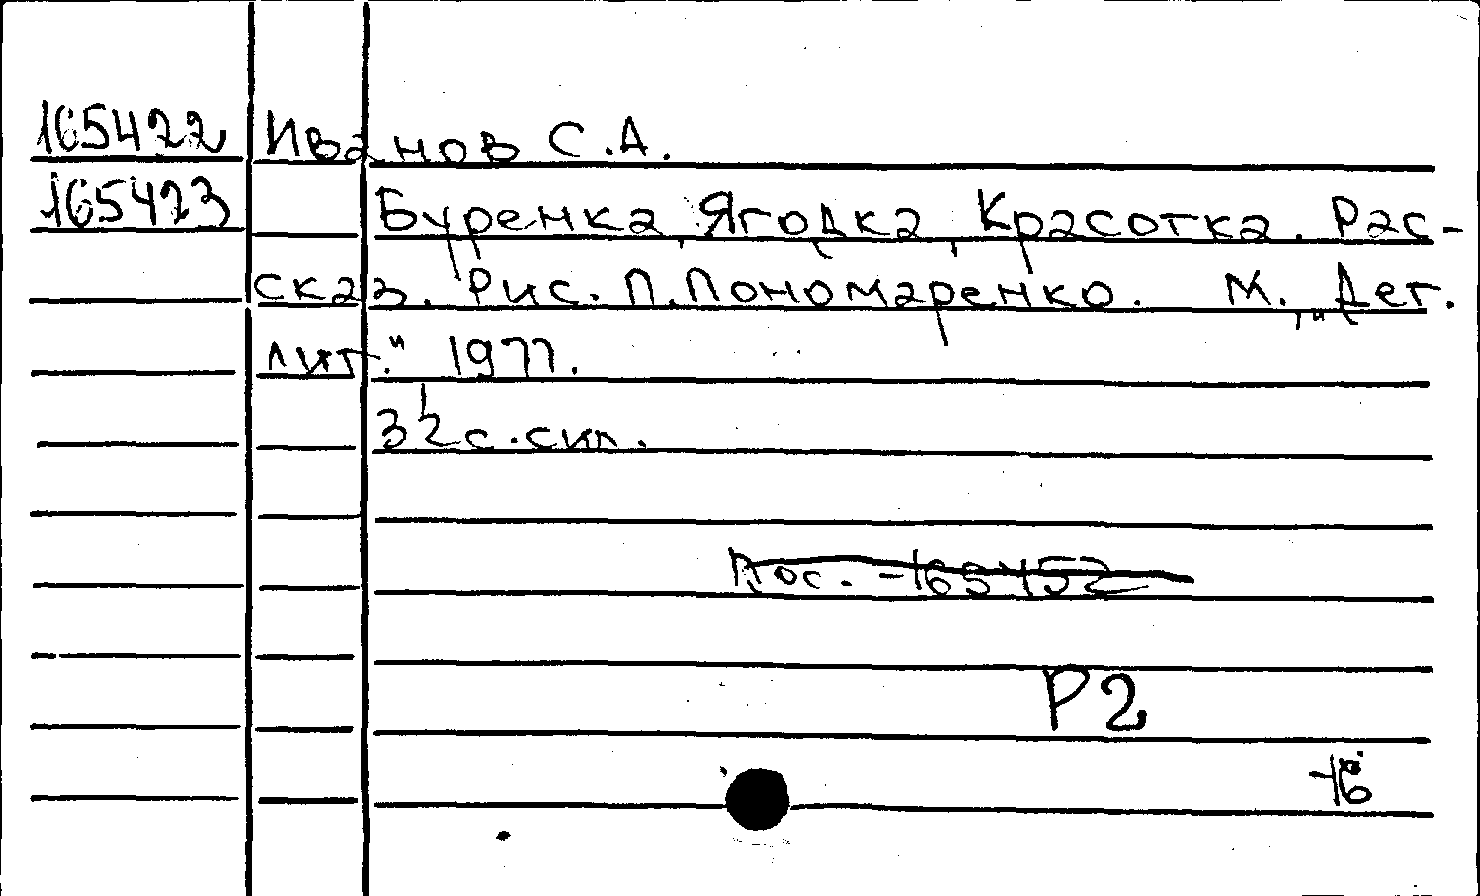 165422 Иванов С.А.
165423 Буренка, Ягодка, Красотка. Рас-
сказ. Рис. П. Пономаренко. М., "Дет.
лит." 1977.
32 с. с ил.
Р2